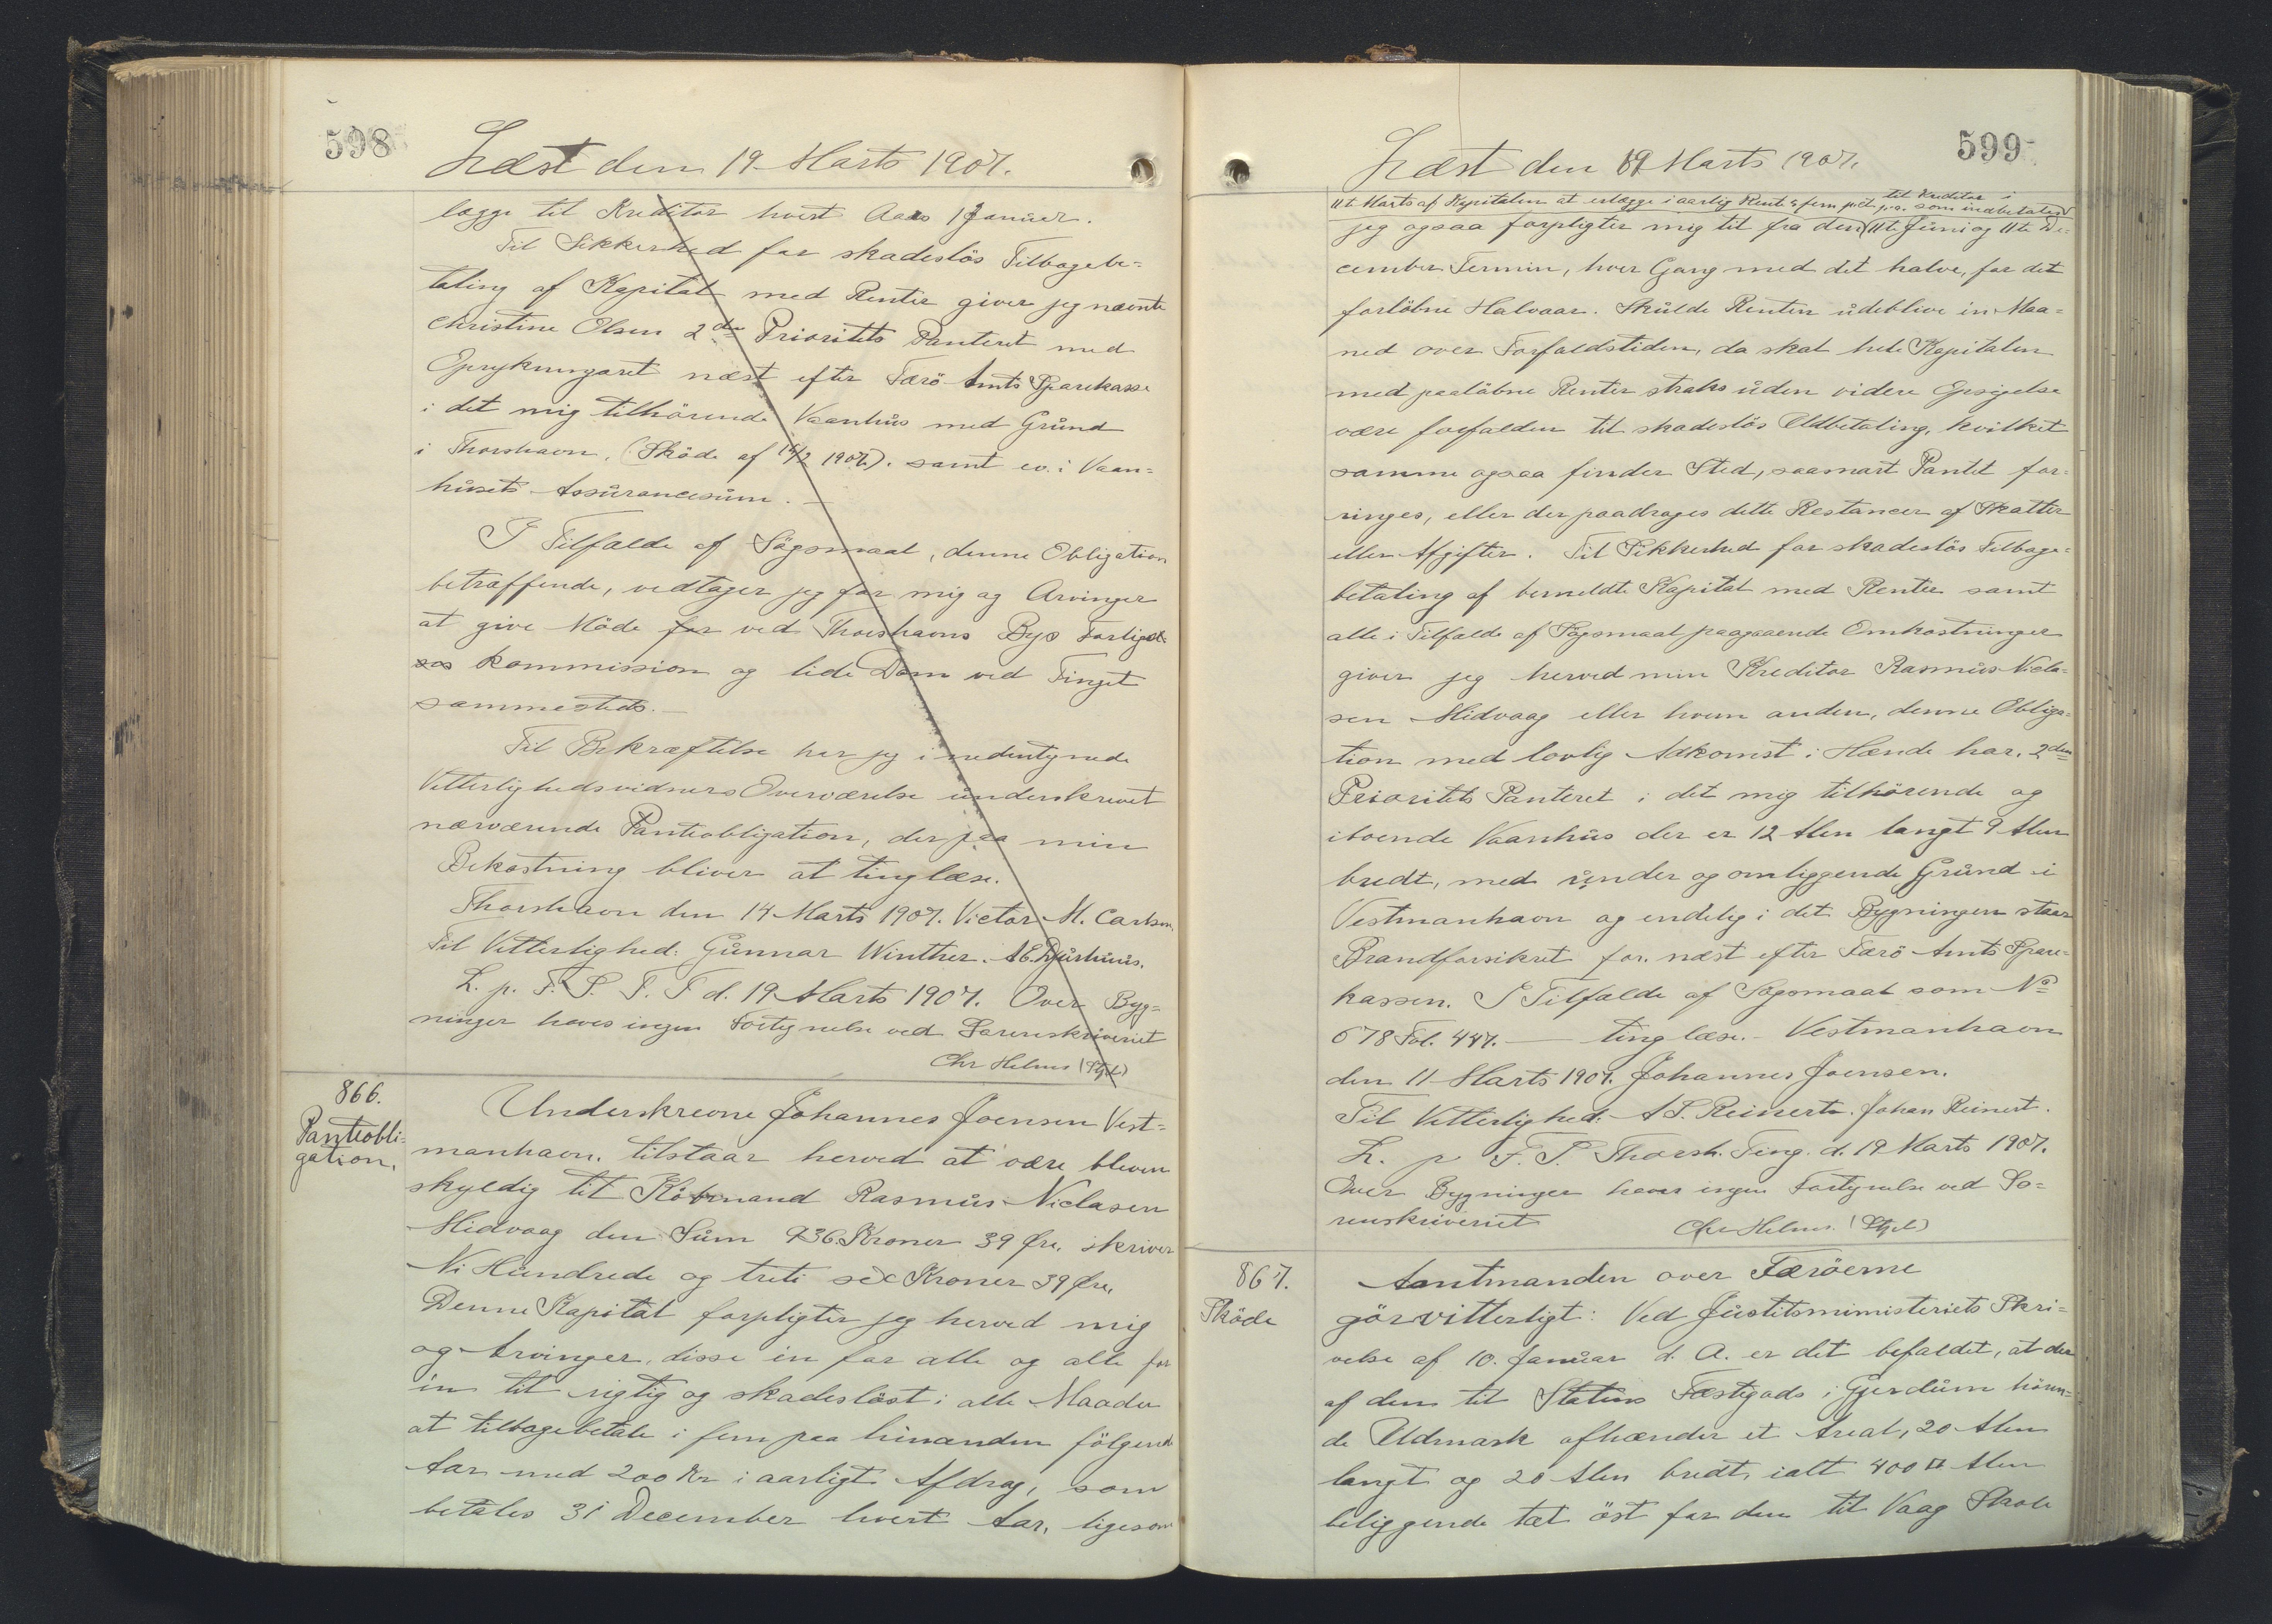 598
Læst den 19 Marts 1907.
lægge til Kreditor hvert Aars 1 Januar.
Til Sikkerhed for skadeslös Tilbagebe=
taling af Kapital med Renter giver jeg nævnte
Christine Olsen 2den Prioritets Panteret med
Oprykningsret næst efter Færö Amts Sparekasse
i det mig tilhörende Vaanhus med Grund
i Thorshavn. (Sköde af 1907). samt ev. i Vaan=
husets Assurancesum.
I Tilfælde af Sögsmaal, denne Obligation
betræffende, vedtager jeg for mig og Arvinger
at give Möde for ved Thorshavns Byes Forligel
ses kommission og lide Dom ved Tinget
sammesteds.
Til Bekræftelse har jeg i nedentegnede
Vitterlighedsvidners Overværelse underskrevet
nærværende Panteobligation, der paa min
Bekostning bliver at tinglæse.
Thorshavn den 14 Marts 1907. Victor M. Carlsen.
Til Vitterlighed: Gunnar Winther. A E. Djurhuus.
L. p. F. S. T. T d. 19 Marts 1907. Over Byg=
ninger haves ingen Fortegnelse ved Sorenskriveriet
Chr Helms (Stfd.)
866.
Panteobli=
gation.
Underskrevne Johannes Joensen Vest=
manhavn. tilstaar herved at være bleven
skyldig til Köbmand Rasmus Niclasen
Midvaag den Sum 936 Kroner 39 Øre. skriver
Ni Hundrede og treti sex Kroner 39 Øre.
Denne Kapital forpligter jeg herved mig
og Arvinger, disse en for alle og alle for
en til rigtig og skadeslöst i alle Maader
at tilbagebetale i fem paa hinanden fölgende
Aar med 200 Kr i aarligt Afdrag, som
betales 31 December hvert Aar, ligesom
599
Læst den 19 Marts 1907.
11te Marts af Kapitalen at erlægge i aarlig Rente 5 fem pCt p.a. som indbetales til Kreditor i
jeg ogsaa forpligter mig til fra den 11te Juni og 11te De=
cember Termin, hver Gang med det halve, for det
forlöbne Halvaar. Skulde Renten udeblive en Maa=
ned over Forfaldstiden, da skal hele Kapitalen
med paalöbne Renter straks uden videre Opsigelse
være forfalden til skadeslös Udbetaling, hvilket
samme ogsaa finder Sted, saasnart Pantet for=
ringes, eller der paadrages dette Restancer af Skatter
eller Afgifter. Til Sikkerhed for skadeslös Tilbage=
betaling af bemeldte Kapital med Renter samt
alle i Tilfælde af Sögsmaal paagaaende Omkostninger
giver jeg herved min Kreditor Rasmus Nicla=
sen Midvaag eller hvem anden, denne Obliga=
tion med lovlig Adkomst i Hænde har, 2den
Prioritets Panteret i det mig tilhörende og
iboende Vaanhus der er 12 Alen langt 9 Alen
bredt, med under og omliggende Grund i
Vestmanhavn og endelig i det Bygningen staar
Brandforsikret for. næst efter Færö Amts Spare=
kassen. I Tilfælde af Sögsmaal som No
678 Fol. 447. — tinglæse. Vestmanhavn
den 11 Marts 1907. Johannes Joensen.
Til Vitterlighed: A S. Reinert. Johan Reinert.
L. p F. S. Thorsh. Ting. d. 19 Marts 1907.
Over Bygninger haves ingen Fortegnelse ved So=
renskriveriet
Chr Helms. (Stfd.)
867.
Sköde
Amtmanden over Færöerne
gör vitterligt: Ved Justitsministeriets Skri=
velse af 10. Januar d. A. er det befaldet, at der
af den til Statens Fæstegods i Gjerdum hören=
de Udmark afhænder et Areal, 20 Alen
langt og 20 Alen bredt, ialt 400 □ Alen
beliggende tæt öst for den til Vaag Skole